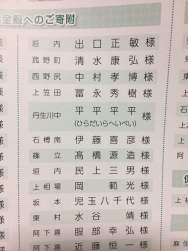 金殿へのご寄附
垣内 出口正敏 様
菰野町 清水康弘 様
西野尻 中村孝博 様
上笠田 冨永秀樹 様
丹生川中 平平平平 様
(ひらだいらへいべい)
石榑南 伊藤喜彦 様
篠立 髙橋源造 様
垣内 民上三男 様
上相場 岡範光 様
坂本 児玉八千代 様
東村 水谷靖 様
阿下喜 服部幸弘 様
阿下喜 近藤恒一 様